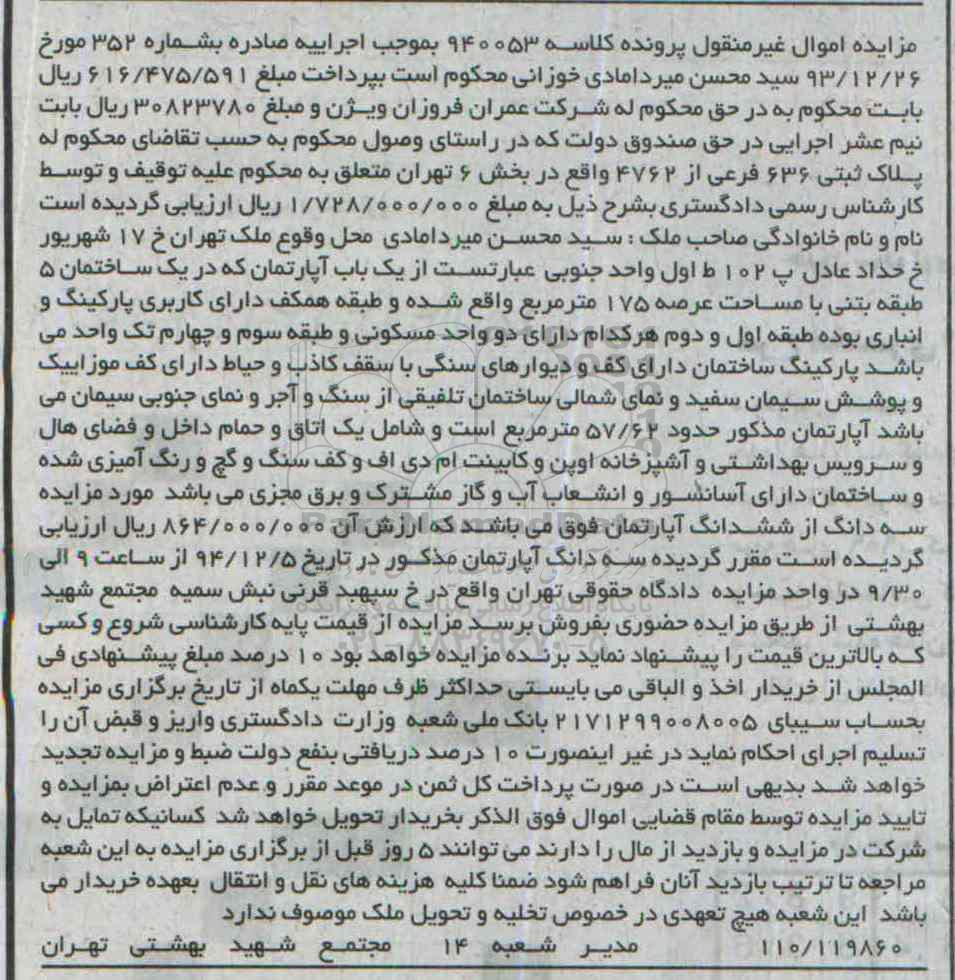 مزایده اموال غیرمنقول پرونده کلاسه ۹۴۰۰۵۳ بموجب اجراییه صادره بشماره ۳۵۲ مورخ
۹۳/۱۲/۲۶ سید محسن میردامادی خوزانی محکوم است بپرداخت مبلغ ۶۱۶/۴۷۵/۵۹۱ ریال
بابت محکوم به در حق محکوم له شرکت عمران فروزان ویژن و مبلغ ۳۰۸۲۳۷۸۰ ریال بابت
نیم عشر اجرایی در حق صندوق دولت که در راستای وصول محکوم به حسب تقاضای محکوم له
پلاک ثبتی ۶۳۶ فرعی از ۴۷۶۲ واقع در بخش ۶ تهران متعلق به محکوم علیه توقیف و توسط
کارشناس رسمی دادگستری بشرح ذیل به مبلغ ۱/۷۲۸/۰۰۰/۰۰۰ ریال ارزیابی گردیده است
نام و نام خانوادگی صاحب ملک : سید محسن میردامادی محل وقوع ملک تهران خ ۱۷ شهریور
خ حداد عادل پ ۱۰۲ ط اول واحد جنوبی عبارتست از یک باب آپارتمان که در یک ساختمان ۵
طبقه بتنی با مساحت عرصه ۱۷۵ مترمربع واقع شده و طبقه همکف دارای کاربری پارکینگ و
انباری بوده طبقه اول و دوم هرکدام دارای دو واحد مسکونی و طبقه سوم و چهارم تک واحد می
باشد پارکینگ ساختمان دارای کف و دیوارهای سنگی با سقف کاذب و حیاط دارای کف موزاییک
و پوشش سیمان سفید و نمای شمالی ساختمان تلفیقی از سنگ و آجر و نمای جنوبی سیمان می
باشد آپارتمان مذکور حدود ۵۷/۶۲ مترمربع است و شامل یک اتاق و حمام داخل و فضای هال
و سرویس بهداشتی و آشپزخانه اوپن و کابینت ام دی اف و کف سنگ و گچ و رنگ آمیزی شده
و ساختمان دارای آسانسور و انشعاب آب و گاز مشترک و برق مجزی می باشد مورد مزایده
سه دانگ از ششدانگ آپارتمان فوق می باشد که ارزش آن ۸۶۴/۰۰۰/۰۰۰ ریال ارزیابی
گردیده است مقرر گردیده سه دانگ آپارتمان مذکور در تاریخ ۹۴/۱۲/۵ از ساعت ۹ الی
۹/۳۰ در واحد مزایده دادگاه حقوقی تهران واقع در خ سپهبد قرنی نبش سمیه مجتمع شهید
بهشتی از طریق مزایده حضوری بفروش برسد مزایده از قیمت پایه کارشناسی شروع و کسی
که بالاترین قیمت را پیشنهاد نماید برنده مزایده خواهد بود ۱۰ درصد مبلغ پیشنهادی فی
المجلس از خریدار اخذ و الباقی می بایستی حداکثر ظرف مهلت یکماه از تاریخ برگزاری مزایده
بحساب سیبای ۲۱۷۱۲۹۹۰۰۸۰۰۵ بانک ملی شعبه وزارت دادگستری واریز و قبض آن را
تسلیم اجرای احکام نماید در غیر اینصورت ۱۰ درصد دریافتی بنفع دولت ضبط و مزایده تجدید
خواهد شد بدیهی است در صورت پرداخت کل ثمن در موعد مقرر و عدم اعتراض بمزایده و
تایید مزایده توسط مقام قضایی اموال فوق الذکر بخریدار تحویل خواهد شد کسانیکه تمایل به
شرکت در مزایده و بازدید از مال را دارند می توانند ۵ روز قبل از برگزاری مزایده به این شعبه
مراجعه تا ترتیب بازدید آنان فراهم شود ضمنا کلیه هزینه های نقل و انتقال بعهده خریدار می
باشد این شعبه هیچ تعهدی در خصوص تخلیه و تحویل ملک موصوف ندارد
۱۱۰/۱۱۹۸۶۰ مدیر شعبه ۱۴ مجتمع شهید بهشتی تهران